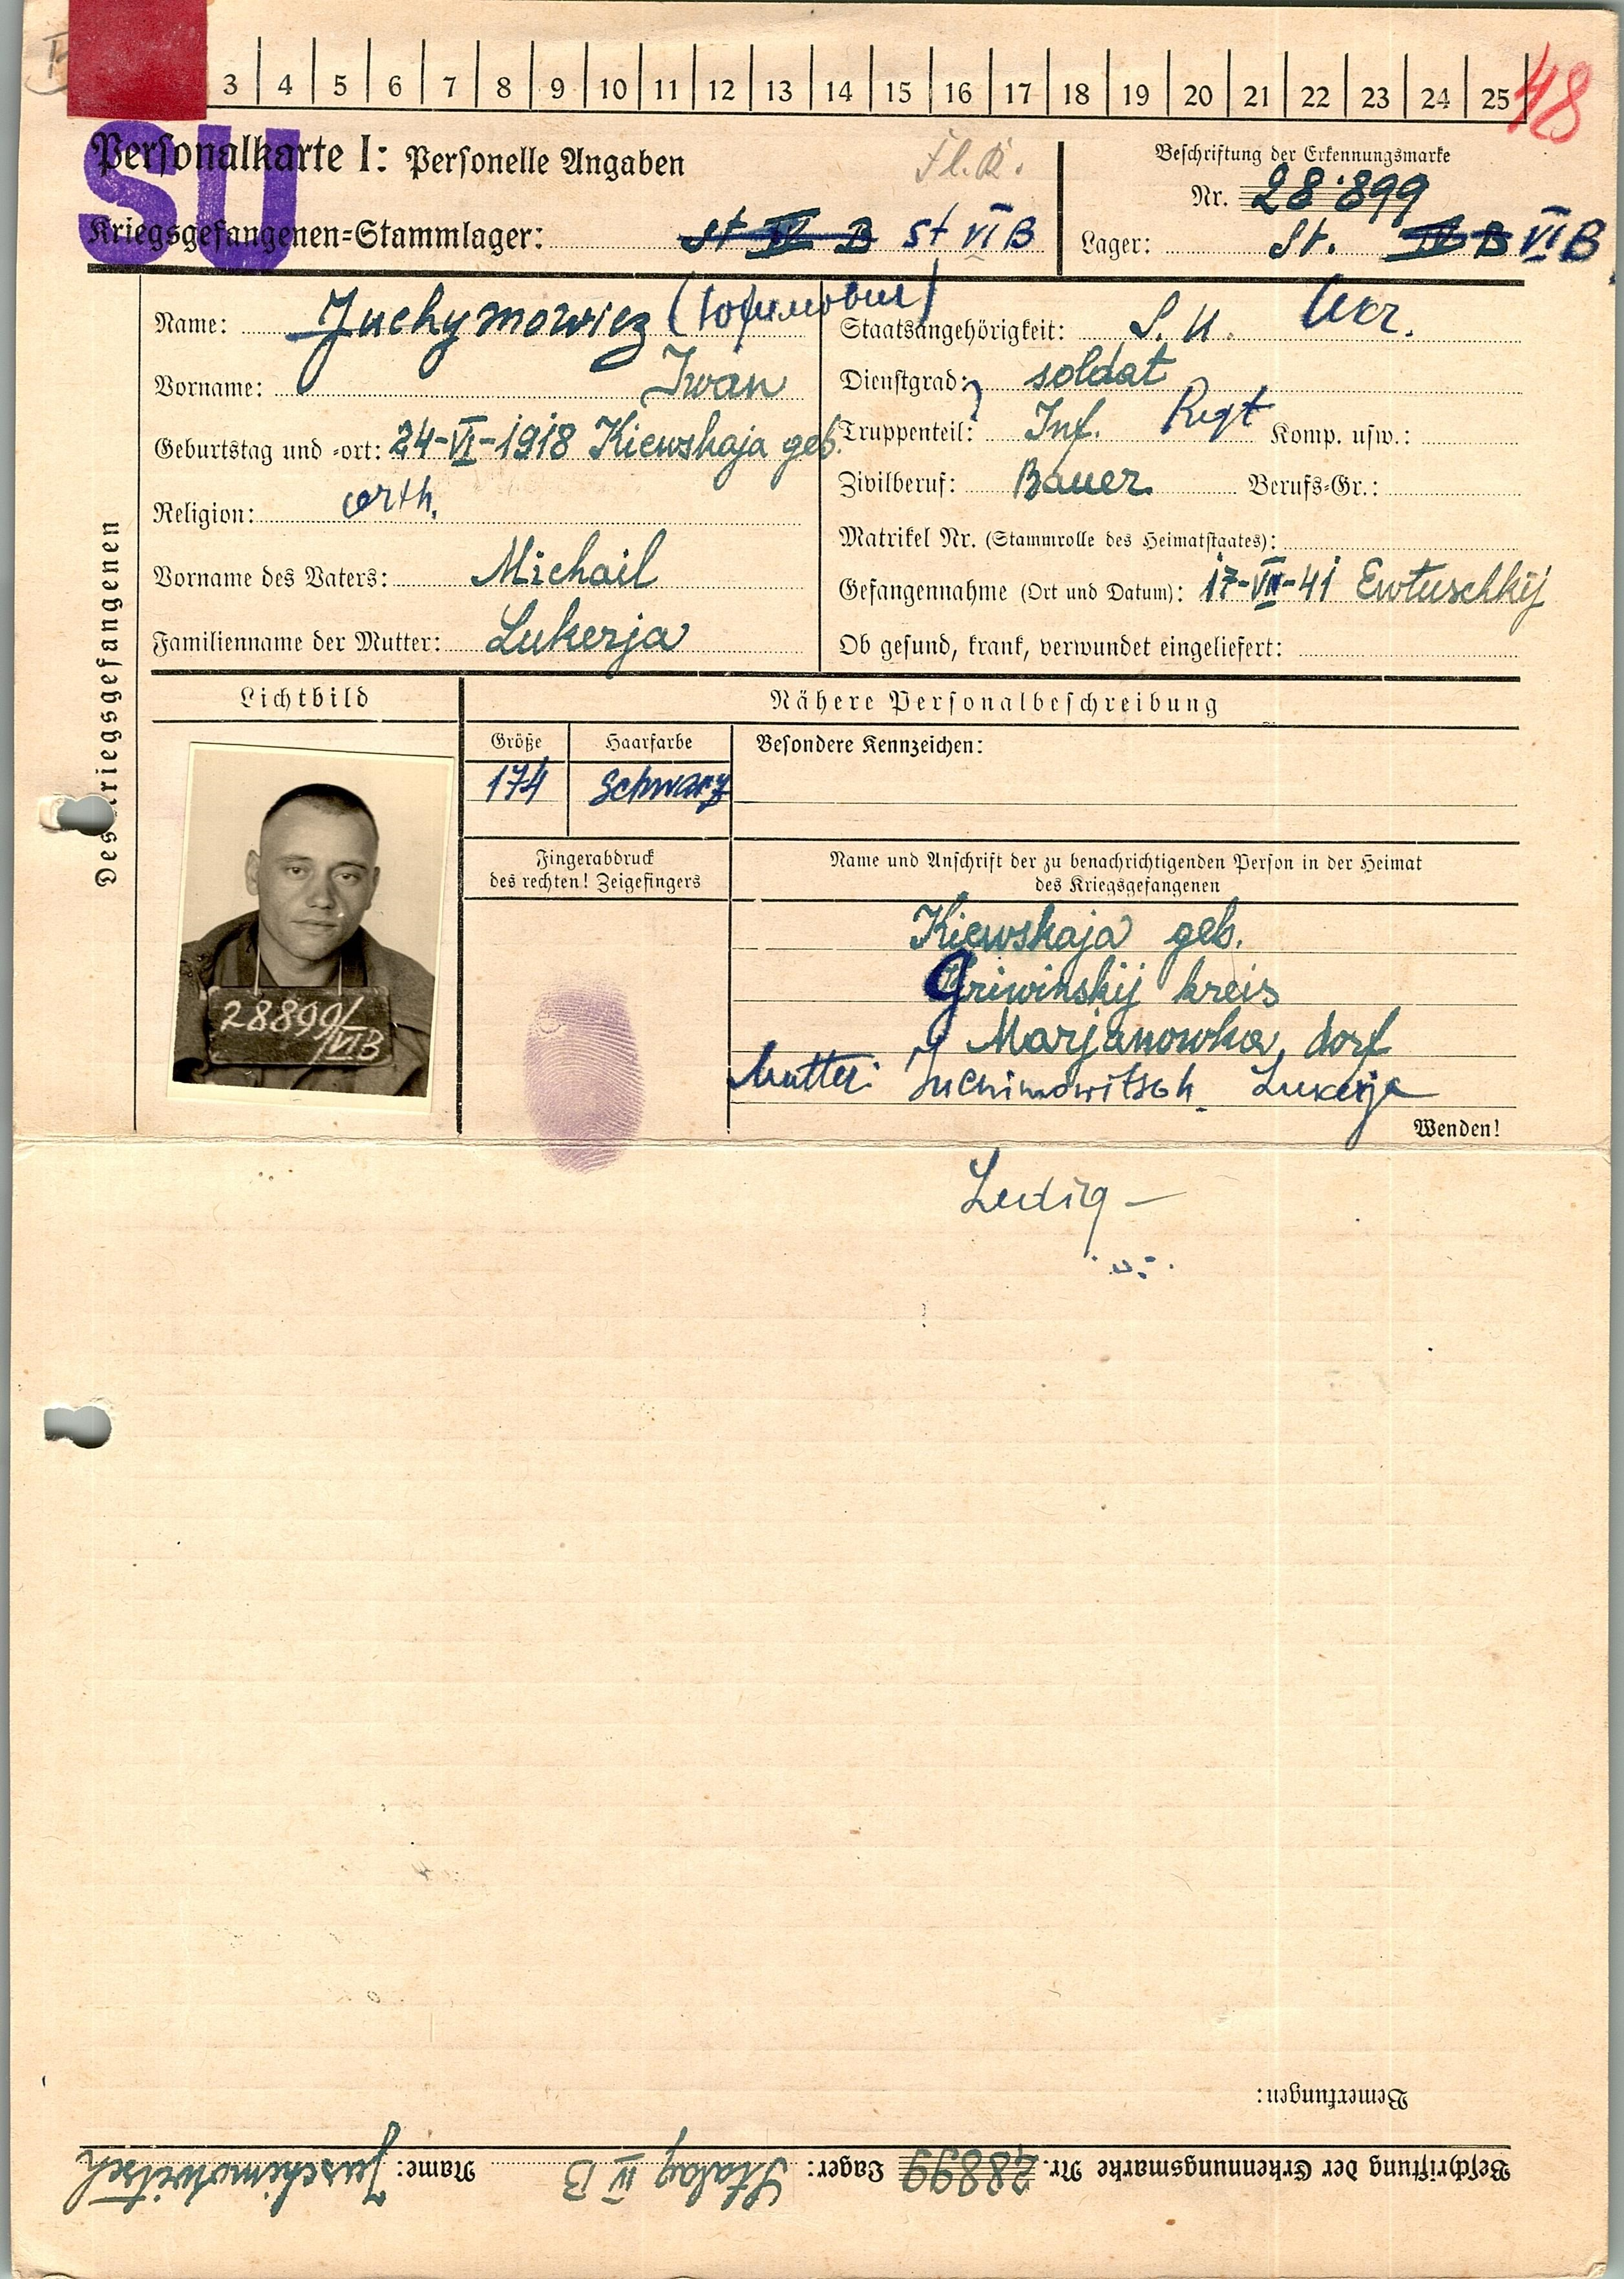 3 4 5 6 7 8 9 10 11 12 13 14 15 16 17 18 19 20 21 22 23 24 25 48
SU
Personalkarte I: Personelle Angaben
Kriegsgefangenen-Stammlager: St IV B St VI B
Beschriftung der Erkennungsmarke
Nr. 28899
Lager: St. IV B VI B
Des Kriegsgefangenen
Name: Juchymowicz (Юхимович)
Vorname: Iwan
Geburtstag und -ort: 24-VI-1918 Kiewskaja geb.
Religion: orth.
Vorname des Vaters: Michail
Familienname der Mutter: Lukerja
Staatsangehörigkeit: S. U. Ukr.
Dienstgrad: soldat
Truppenteil: Inf. Regt Komp. usw.:
Zivilberuf: Bauer Berufs-Gr.:
Matrikel Nr. (Stammrolle des Heimatstaates):
Gefangennahme (Ort und Datum): 17-VII-41 Ewtuschkij
Ob gesund, krank, verwundet eingeliefert:
Lichtbild
28899/
VIB
Nähere Personalbeschreibung
Größe Haarfarbe Besondere Kennzeichen:
174 schwarz
Fingerabdruck
des rechten! Zeigefingers
Name und Anschrift der zu benachrichtigenden Person in der Heimat
des Kriegsgefangenen
Kiewskaja geb.
Griwinskij kreis
Marjanowka, dorf
Mutter: Juchimowitsch Lukerja
Wenden!
Ledig –
Bemerkungen:
Beschriftung der Erkennungsmarke Nr. 28899 Lager: Stalag IV B Name: Juschimowitsch